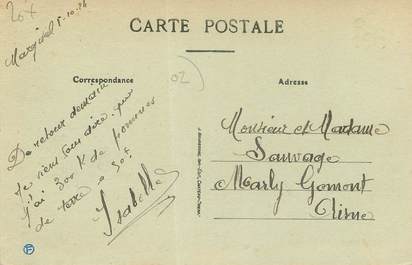 20 F
CARTE POSTALE
5-10-26
Correspondance
02
Adresse
De retour demain
Je viens vous dire que
j'ai 300 K de pommes
de terre à 50 F
Isabelle
Monsieur et Madame
Sauvage
Marly Gomont
Aisne